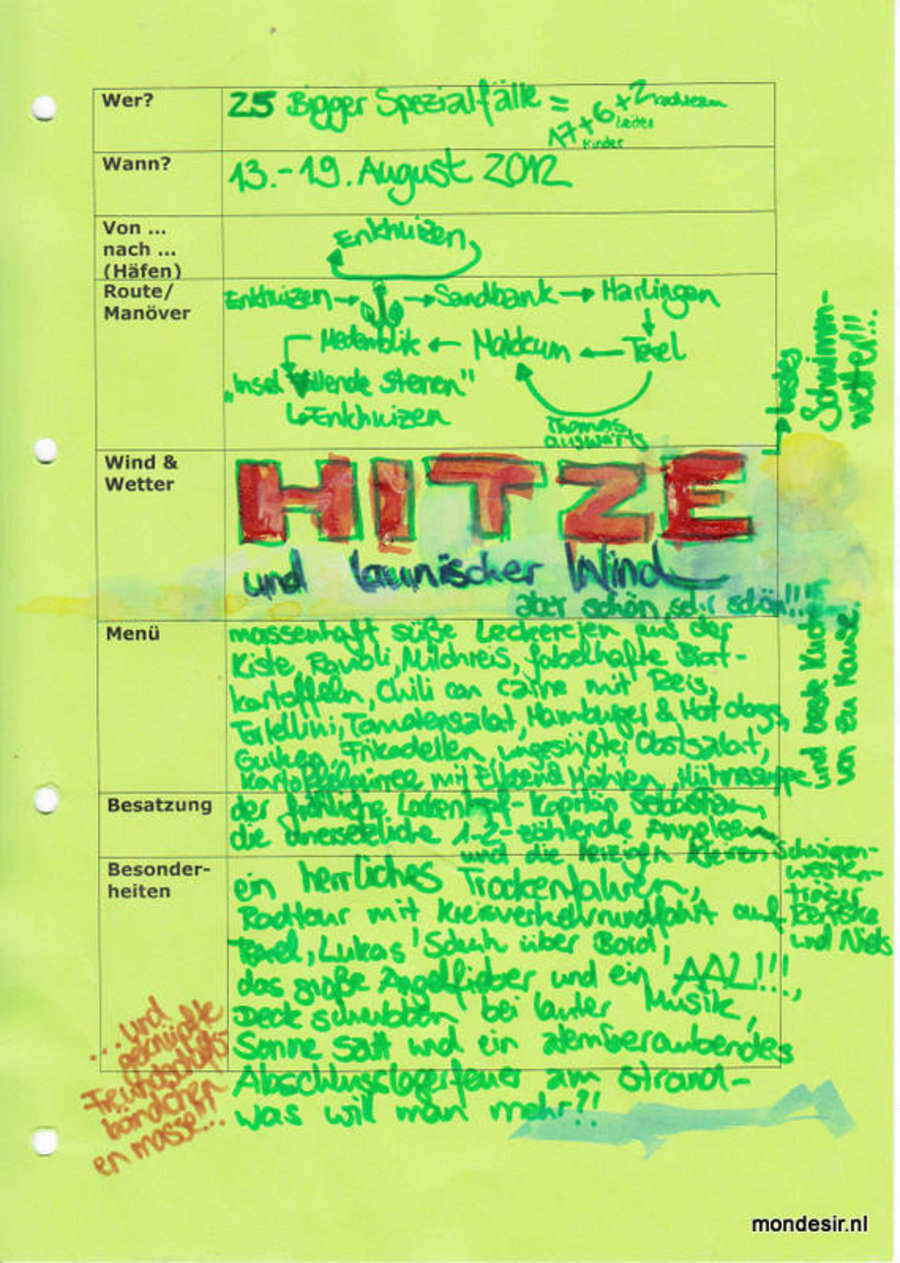 Wer?
25 Bigger Spezialfälle = 17+6+2
Kinder Leiter
Wann?
13.-19. August 2012
Von ...
nach ...
(Häfen)
Enkhuizen
Route/
Manöver
Enkhuizen → → Sandbank → Harlingen
Medemblik ← Makkum ← Texel
"Insel stenen"
↳ Enkhuizen
Thomas
auswärts
→ bestes
Schwimm-
wetter!!!
Wind &
Wetter
HITZE
und launischer Wind
aber schön, sehr schön!!!
Menü
massenhaft süße Leckereien aus der
Kiste, Ravioli, Milchreis, fabelhafte Brat-
kartoffeln, Chili con carne mit Reis,
Tortellini, Tomatensalat, Hamburger & Hot dogs,
Gurken, Frikadellen, ungesüßter Obstsalat,
Kartoffelpüree mit Erbsen & Möhren, Hühnersuppe
und
von zu Hause
Besatzung
der fröhliche Lockenkopf-Kapitän Sebastian,
die unersetzliche 1-2-zählende Anneleen
und die kleinen Schwimm-
westen-
träger
und Niels
Besonder-
heiten
ein herrliches Trockenfahren,
Radtour mit Kreisverkehrrundfahrt auf
Texel, Lukas' Schuh über Bord,
das große Angelfieber und ein AAL!!!,
Deck schrubben bei lauter Musik,
Sonne satt und ein atemberaubendes
Abschlusslagerfeuer am Strand-
was will man mehr?!
...und
geknüpfte
Freundschafts-
bändchen
en masse...
mondesir.nl